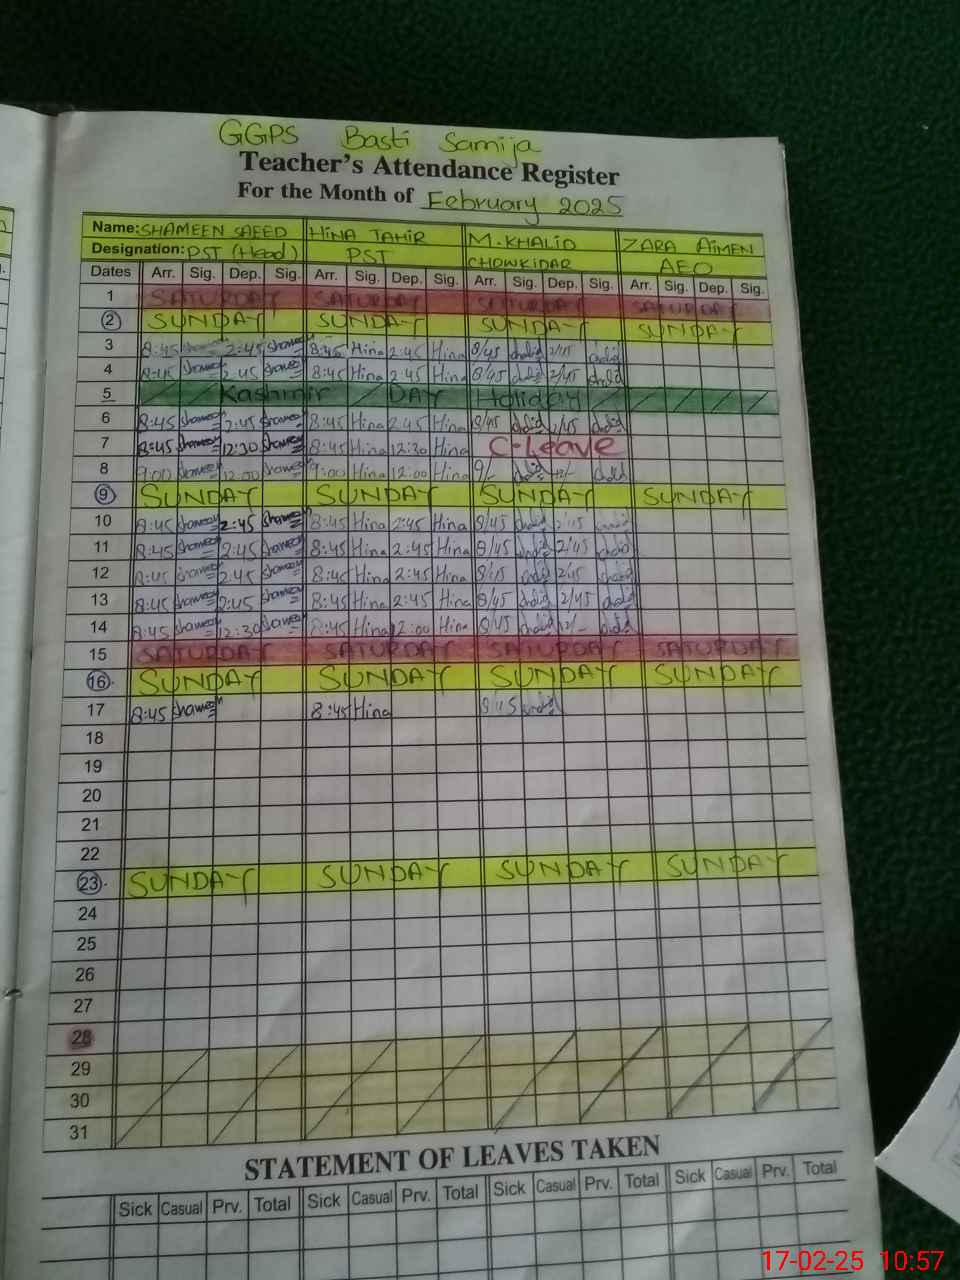 GGPS Basti Samija
Teacher's Attendance Register
For the Month of February 2025
Name: SHAMEEN SAEED HINA TAHIR M. KHALID ZARA AIMEN
Designation: PST (Head) PST CHOWKIDAR AEO
Dates Arr. Sig. Dep. Sig. Arr. Sig. Dep. Sig. Arr. Sig. Dep. Sig. Arr. Sig. Dep. Sig.
1 SATURDAY SATURDAY SATURDAY SATURDAY
2 SUNDAY SUNDAY SUNDAY SUNDAY
3 8:45 Shameen 2:45 Shameen 8:45 Hina 2:45 Hina 8/45 2/45
4 8:45 2:45 Shameen 8:45 Hina 2:45 Hina 8/45 2/45
5 Kashmir DAY Holiday
6 8:45 Shameen 2:45 Shameen 8:45 Hina 2:45 Hina 8/45 2/45
7 8:45 Shameen 12:30 Shameen 8:45 Hina 12:30 Hina C-Leave
8 9:00 Shameen 12:00 Shameen 9:00 Hina 12:00 Hina 9/- 12/-
9 SUNDAY SUNDAY SUNDAY SUNDAY
10 8:45 Shameen 2:45 Shameen 8:45 Hina 2:45 Hina 8/45 2/45
11 8:45 Shameen 2:45 Shameen 8:45 Hina 2:45 Hina 8/45 2/45
12 8:45 Shameen 2:45 Shameen 8:45 Hina 2:45 Hina 8/45 2/45
13 8:45 Shameen 2:45 Shameen 8:45 Hina 2:45 Hina 8/45 2/45
14 8:45 Shameen 12:30 Shameen 8:45 Hina 12:00 Hina 8/45 12/-
15 SATURDAY SATURDAY SATURDAY SATURDAY
16 SUNDAY SUNDAY SUNDAY SUNDAY
17 8:45 Shameen 8:45 Hina 8/45
18
19
20
21
22
23 SUNDAY SUNDAY SUNDAY SUNDAY
24
25
26
27
28
29
30
31
STATEMENT OF LEAVES TAKEN
Sick Casual Prv. Total Sick Casual Prv. Total Sick Casual Prv. Total Sick Casual Prv. Total
17-02-25 10:57